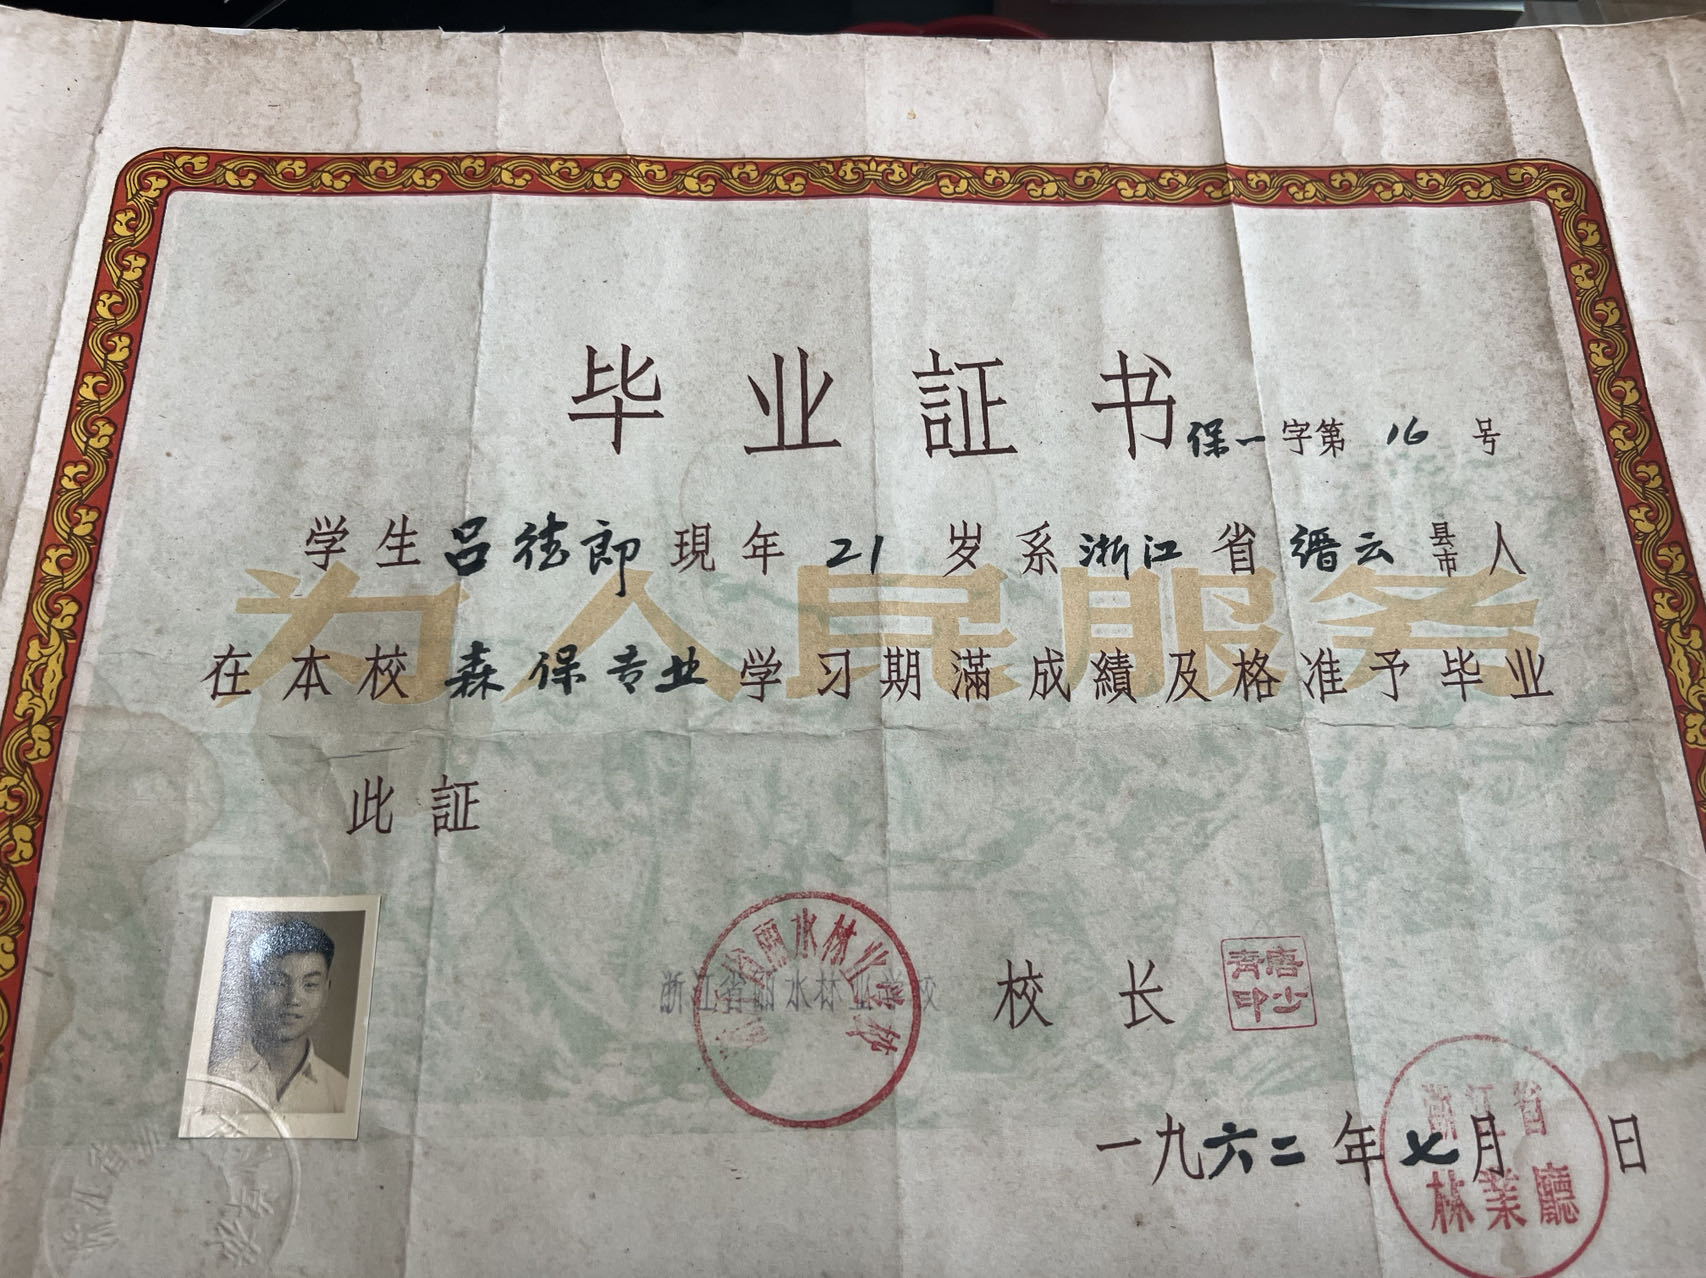 毕业証书
保一字第16号
学生吕德郎現年21岁系浙江省缙云县市人
为人民服务
在本校森保专业学习期滿成績及格准予毕业
此証
浙江省丽水林业学校
省丽水林业学校
校长
唐少青印
一九六二年七月 日
浙江省
林業廳
浙江省